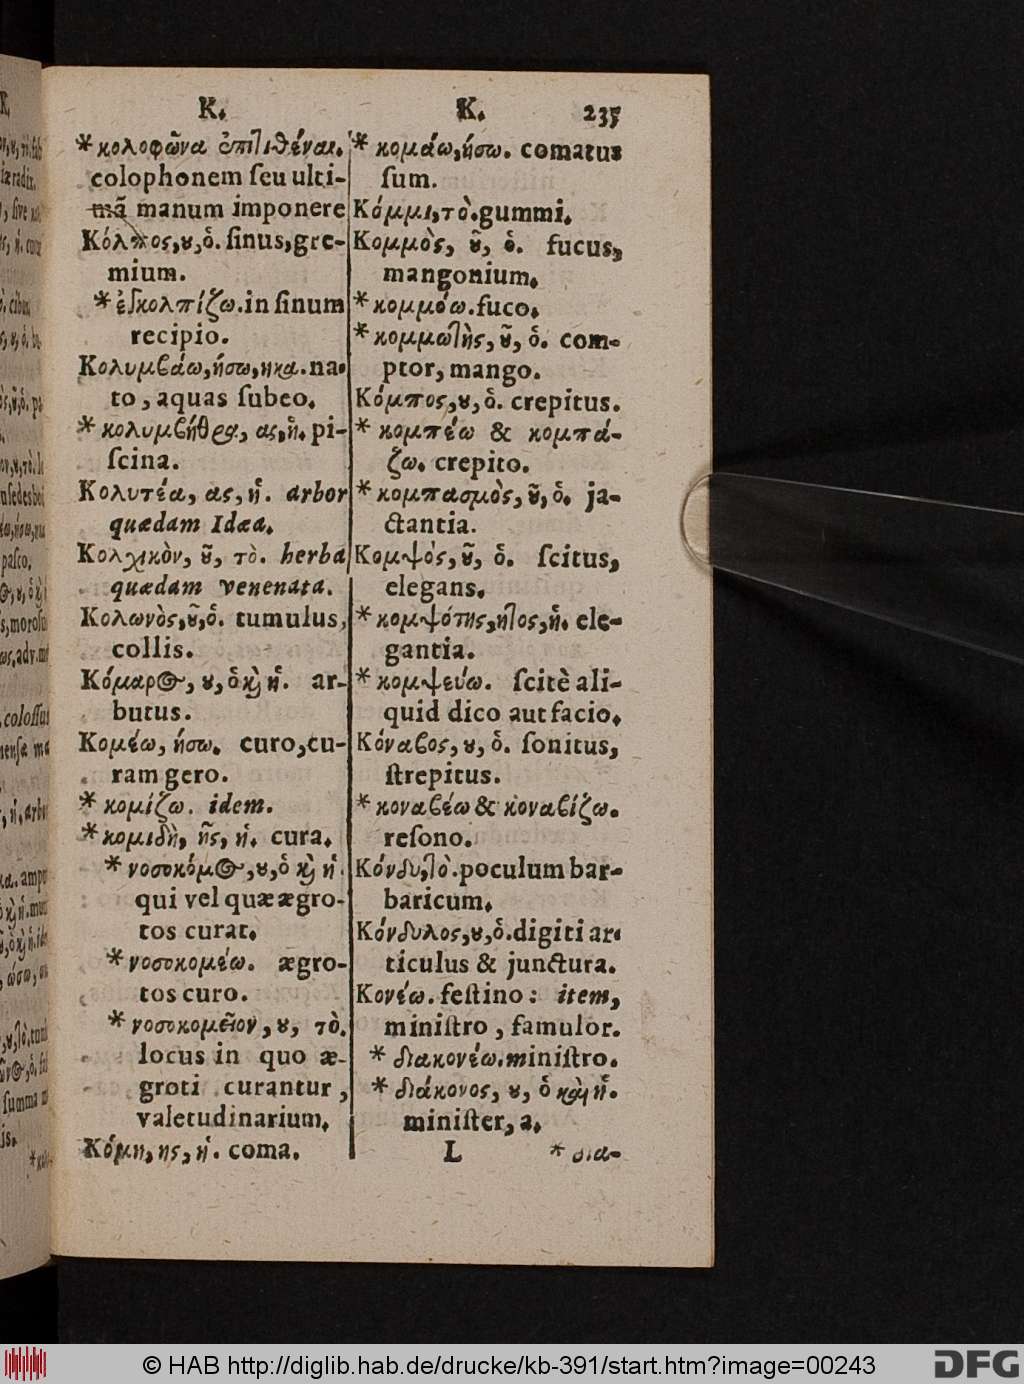 K.
* κολοφῶνα ἐπιτιθέναι.
colophonem ſeu ulti-
mã manum imponere
Κόλπος, ȣ, ὁ. ſinus, gre-
mium.
* ἐγκολπίζω. in ſinum
recipio.
Κολυμϐάω, ήσω, ηκα. na-
to, aquas ſubeo.
* κολυμϐήθρα, ας, ἡ. pi-
ſcina.
Κολυτέα, ας, ἡ. arbor
quædam Idæa.
Κολχικὸν, ȣ͂, τὸ. herba
quædam venenata.
Κολωνὸς, ȣ͂, ὁ. tumulus,
collis.
Κόμαρος, ȣ, ὁ ϗ̀ ἡ. ar-
butus.
Κομέω, ήσω. curo, cu-
ram gero.
* κομίζω. idem.
* κομιδὴ, ῆς, ἡ. cura.
* νοσοκόμος, ȣ, ὁ ϗ̀ ἡ.
qui vel quæ ægro-
tos curat.
* νοσοκομέω. ægro-
tos curo.
* νοσοκομεῖον, ȣ, τὸ.
locus in quo æ-
groti curantur,
valetudinarium.
Κόμη, ης, ἡ. coma.
K. 235
* κομάω, ήσω. comatus
ſum.
Κόμμι, τὸ. gummi.
Κομμὸς, ȣ͂, ὁ. fucus,
mangonium.
* κομμόω. fuco.
* κομμωτὴς, ȣ͂, ὁ. com-
ptor, mango.
Κόμπος, ȣ, ὁ. crepitus.
* κομπέω & κομπά-
ζω. crepito.
* κομπασμὸς, ȣ͂, ὁ. ja-
ctantia.
Κομψὸς, ȣ͂, ὁ. ſcitus,
elegans.
* κομψότης, ητος, ἡ. ele-
gantia.
* κομψεύω. ſcitè ali-
quid dico aut facio.
Κόναϐος, ȣ, ὁ. ſonitus,
ſtrepitus.
* κοναϐέω & κοναϐίζω.
reſono.
Κόνδυ, τὸ. poculum bar-
baricum.
Κόνδυλος, ȣ, ὁ. digiti ar-
ticulus & junctura.
Κονέω. feſtino: item,
miniſtro, famulor.
* διακονέω. miniſtro.
* διάκονος, ȣ, ὁ καὶ ἡ.
miniſter, a.
L * δια-
© HAB http://diglib.hab.de/drucke/kb-391/start.htm?image=00243
DFG